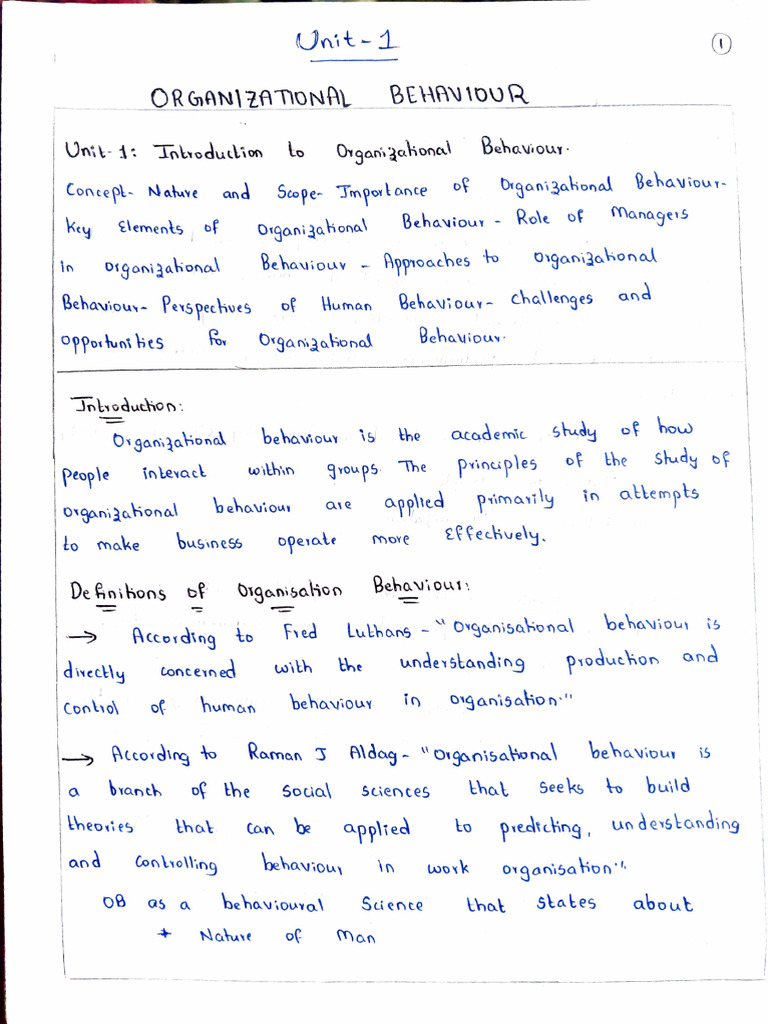 Unit-1
1
ORGANIZATIONAL BEHAVIOUR
Unit-1: Introduction to Organizational Behaviour.
Concept- Nature and Scope- Importance of Organizational Behaviour-
Key Elements of Organizational Behaviour - Role of Managers
in organizational Behaviour - Approaches to organizational
Behaviour- Perspectives of Human Behaviour- challenges and
opportunities for Organizational Behaviour.
Introduction:
Organizational behaviour is the academic study of how
people interact within groups. The principles of the study of
organizational behaviour are applied primarily in attempts
to make business operate more effectively.
Definitions of Organisation Behaviour:
→ According to Fred Luthans - "Organisational behaviour is
directly concerned with the understanding production and
control of human behaviour in organisation."
→ According to Raman J Aldag - "Organisational behaviour is
a branch of the social sciences that seeks to build
theories that can be applied to predicting, understanding
and controlling behaviour in work organisation".
OB as a behavioural Science that states about
* Nature of Man